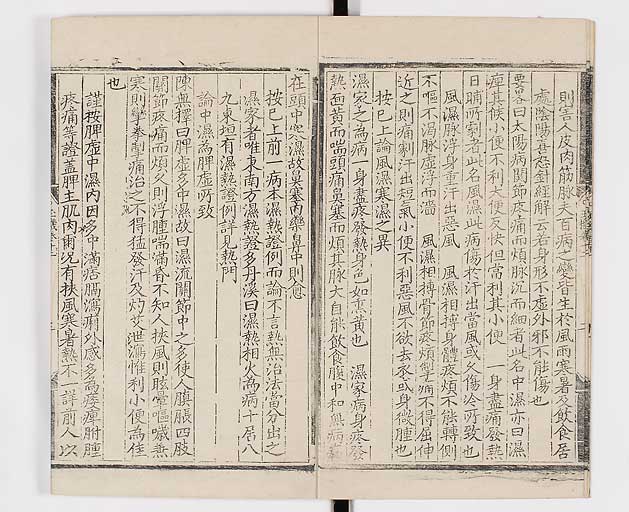 則害人皮肉筋脉夫百病之變皆生於風雨寒暑及飲食居
處陰陽喜怒針經解云若身形不虛外邪不能傷也
要畧曰太陽病關節疼痛而煩脉沉而細者此名中濕亦曰濕
痺其候小便不利大便反快但當利其小便　一身盡痛發熱
日晡所劇者此名風濕此病傷於汗出當風或久傷冷所致也
風濕脉浮身重汗出惡風　風濕相搏身體疼煩不能轉側
不嘔不渴脉虛浮而濇　風濕相搏骨節疼煩掣痛不得屈伸
近之則痛劇汗出短氣小便不利惡風不欲去衣或身微腫也
按已上論風濕寒濕之異
濕家之為病一身盡疼發熱身色如熏黃也　濕家病身疼發
熱面黃而喘頭痛鼻塞而煩其脉大自能飲食腹中和無病
在頭中寒濕故鼻塞內藥鼻中則愈
按已上前一病本濕熱證例而論不言熱無治法當分出之
濕家者唯東南方濕熱證多丹溪曰濕熱相火為病十居八
九東垣有濕熱證例詳見熱門
論中濕為脾虛所致
陳無擇曰脾虛多中濕故曰濕流關節中之多使人䐜脹四肢
關節疼痛而煩久則浮腫喘滿昏不知人挾風則眩暈嘔噦兼
寒則攣拳掣痛治之不得猛發汗及灼艾泄瀉惟利小便為佳
也
謹按脾虛中濕內因多中滿痞膈瀉痢外感多為痿痺胕腫
疼痛等證蓋脾主肌肉爾況有挾風寒暑熱不一詳前人以